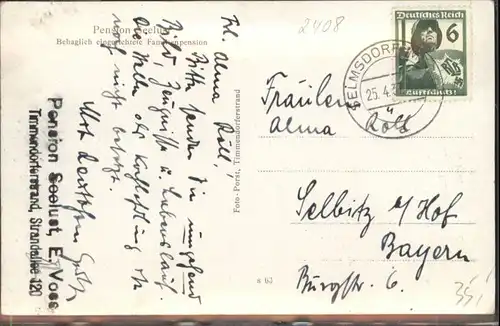 Pension Seelust
Behaglich eingerichtete Familienpension
Frl. Alma Röll,
Bitte senden Sie umgehend
Bild, Zeugnisse u. Lebenslauf.
Die Stelle als Kochlehrling ist
noch nicht besetzt.
Mit Deutschem Gruß
Pension Seelust, E. Voss
Timmendorferstrand, Strandallee 120
Foto-Porst, Timmendorferstrand
2408
Deutsches Reich
6
Luftschutz
SELMSDORF
25.4.
Fräulein
Alma Röll
Selbitz b/Hof
Bayern
Burgstr. 6.
R 63
35,-